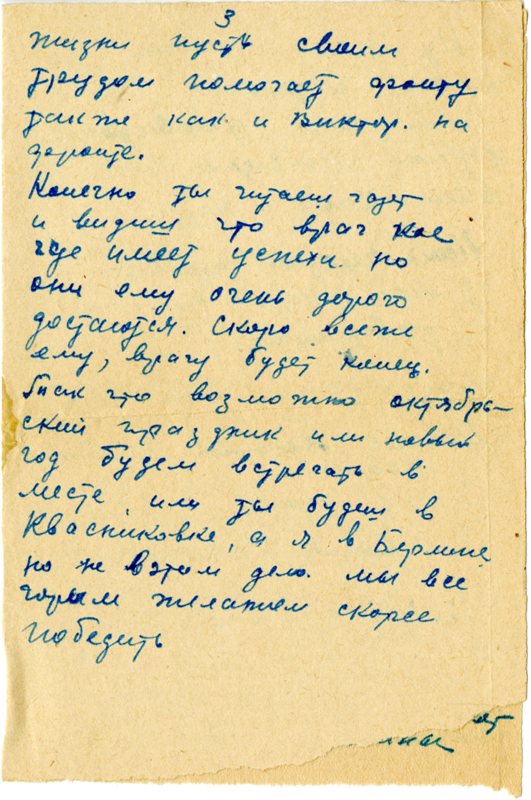 3
жизни пусть своим
трудом помогает фронту
также как и Виктор. на
фронте.
Конечно ты читаеш газет
и видиш что враг кое
где имеет успехи но
они ему очень дорого
достаются. Скоро всеже
ему, врагу будет конец.
Так что возможно октябрь-
ский праздник или новый
год будем встречать в
месте или ты будеш в
Квасниковке, а я в Берлине
но не вэтом дело. мы все
горим желанием скорее
победить